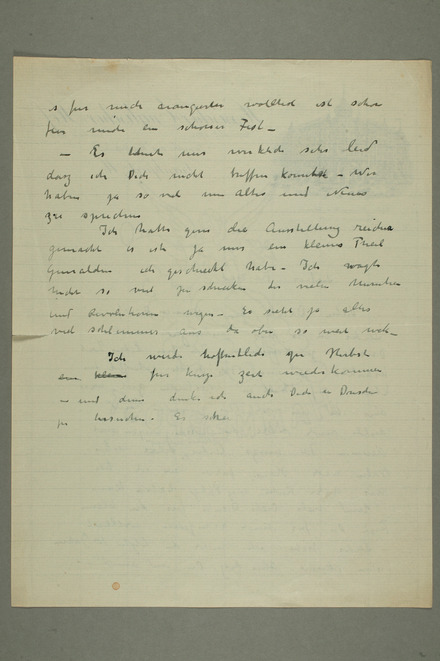 s für mich arrangierter ist schon
für mich ein schönes Fest –
– Es thut mir wirklich sehr leid
dasz ich Dich nicht treffen konnte – Wir
haben ja so viel um Altes und Neues
zu sprechen
Ich hätte gern die Ausstellung reicher
gemacht es ist ja nur ein kleines Theil
Gemälden ich geschickt habe – Ich wagte
nicht so viel zu schicken der vielen Unruhen
und Revolutionen wegen – Es sieht ja alles
viel schlimmer aus da oben so weit weg –
Ich werde hoffentlich zu Herbst
ein klein für kurze Zeit wiederkommen
– und dann denke ich auch Dich in Dresden
zu besuchen. Es